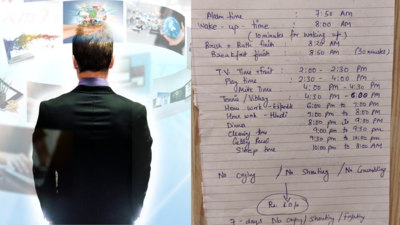 Alarm time : 7:50 AM
Wake-up-time : 8:00 AM
(10 minutes for waking up)
Brush + Bath finish : 8:20 AM
Breakfast finish : 8:50 AM (30 minutes)
T.V. Time : 2:00 - 2:30 PM
Play time : 2:30 - 4:00 PM
Milk Time : 4:00 PM - 4:30 PM
Tennis / : 4:30 PM - 6:00 PM
Home work - : 6:00 PM to 7:00 PM
Home work - Hindi : 7:00 PM to 8:00 PM
Dinner : 8:00 PM to 9:00 PM
Cleaning time : 9:00 PM to 9:30 PM
: 9:30 PM to 10:00 PM
Sleep time : 10:00 PM to 8:00 AM
No Crying / No Shouting / No Grumbling
Rs. 10/-
7-days No Crying / Shouting / fighting